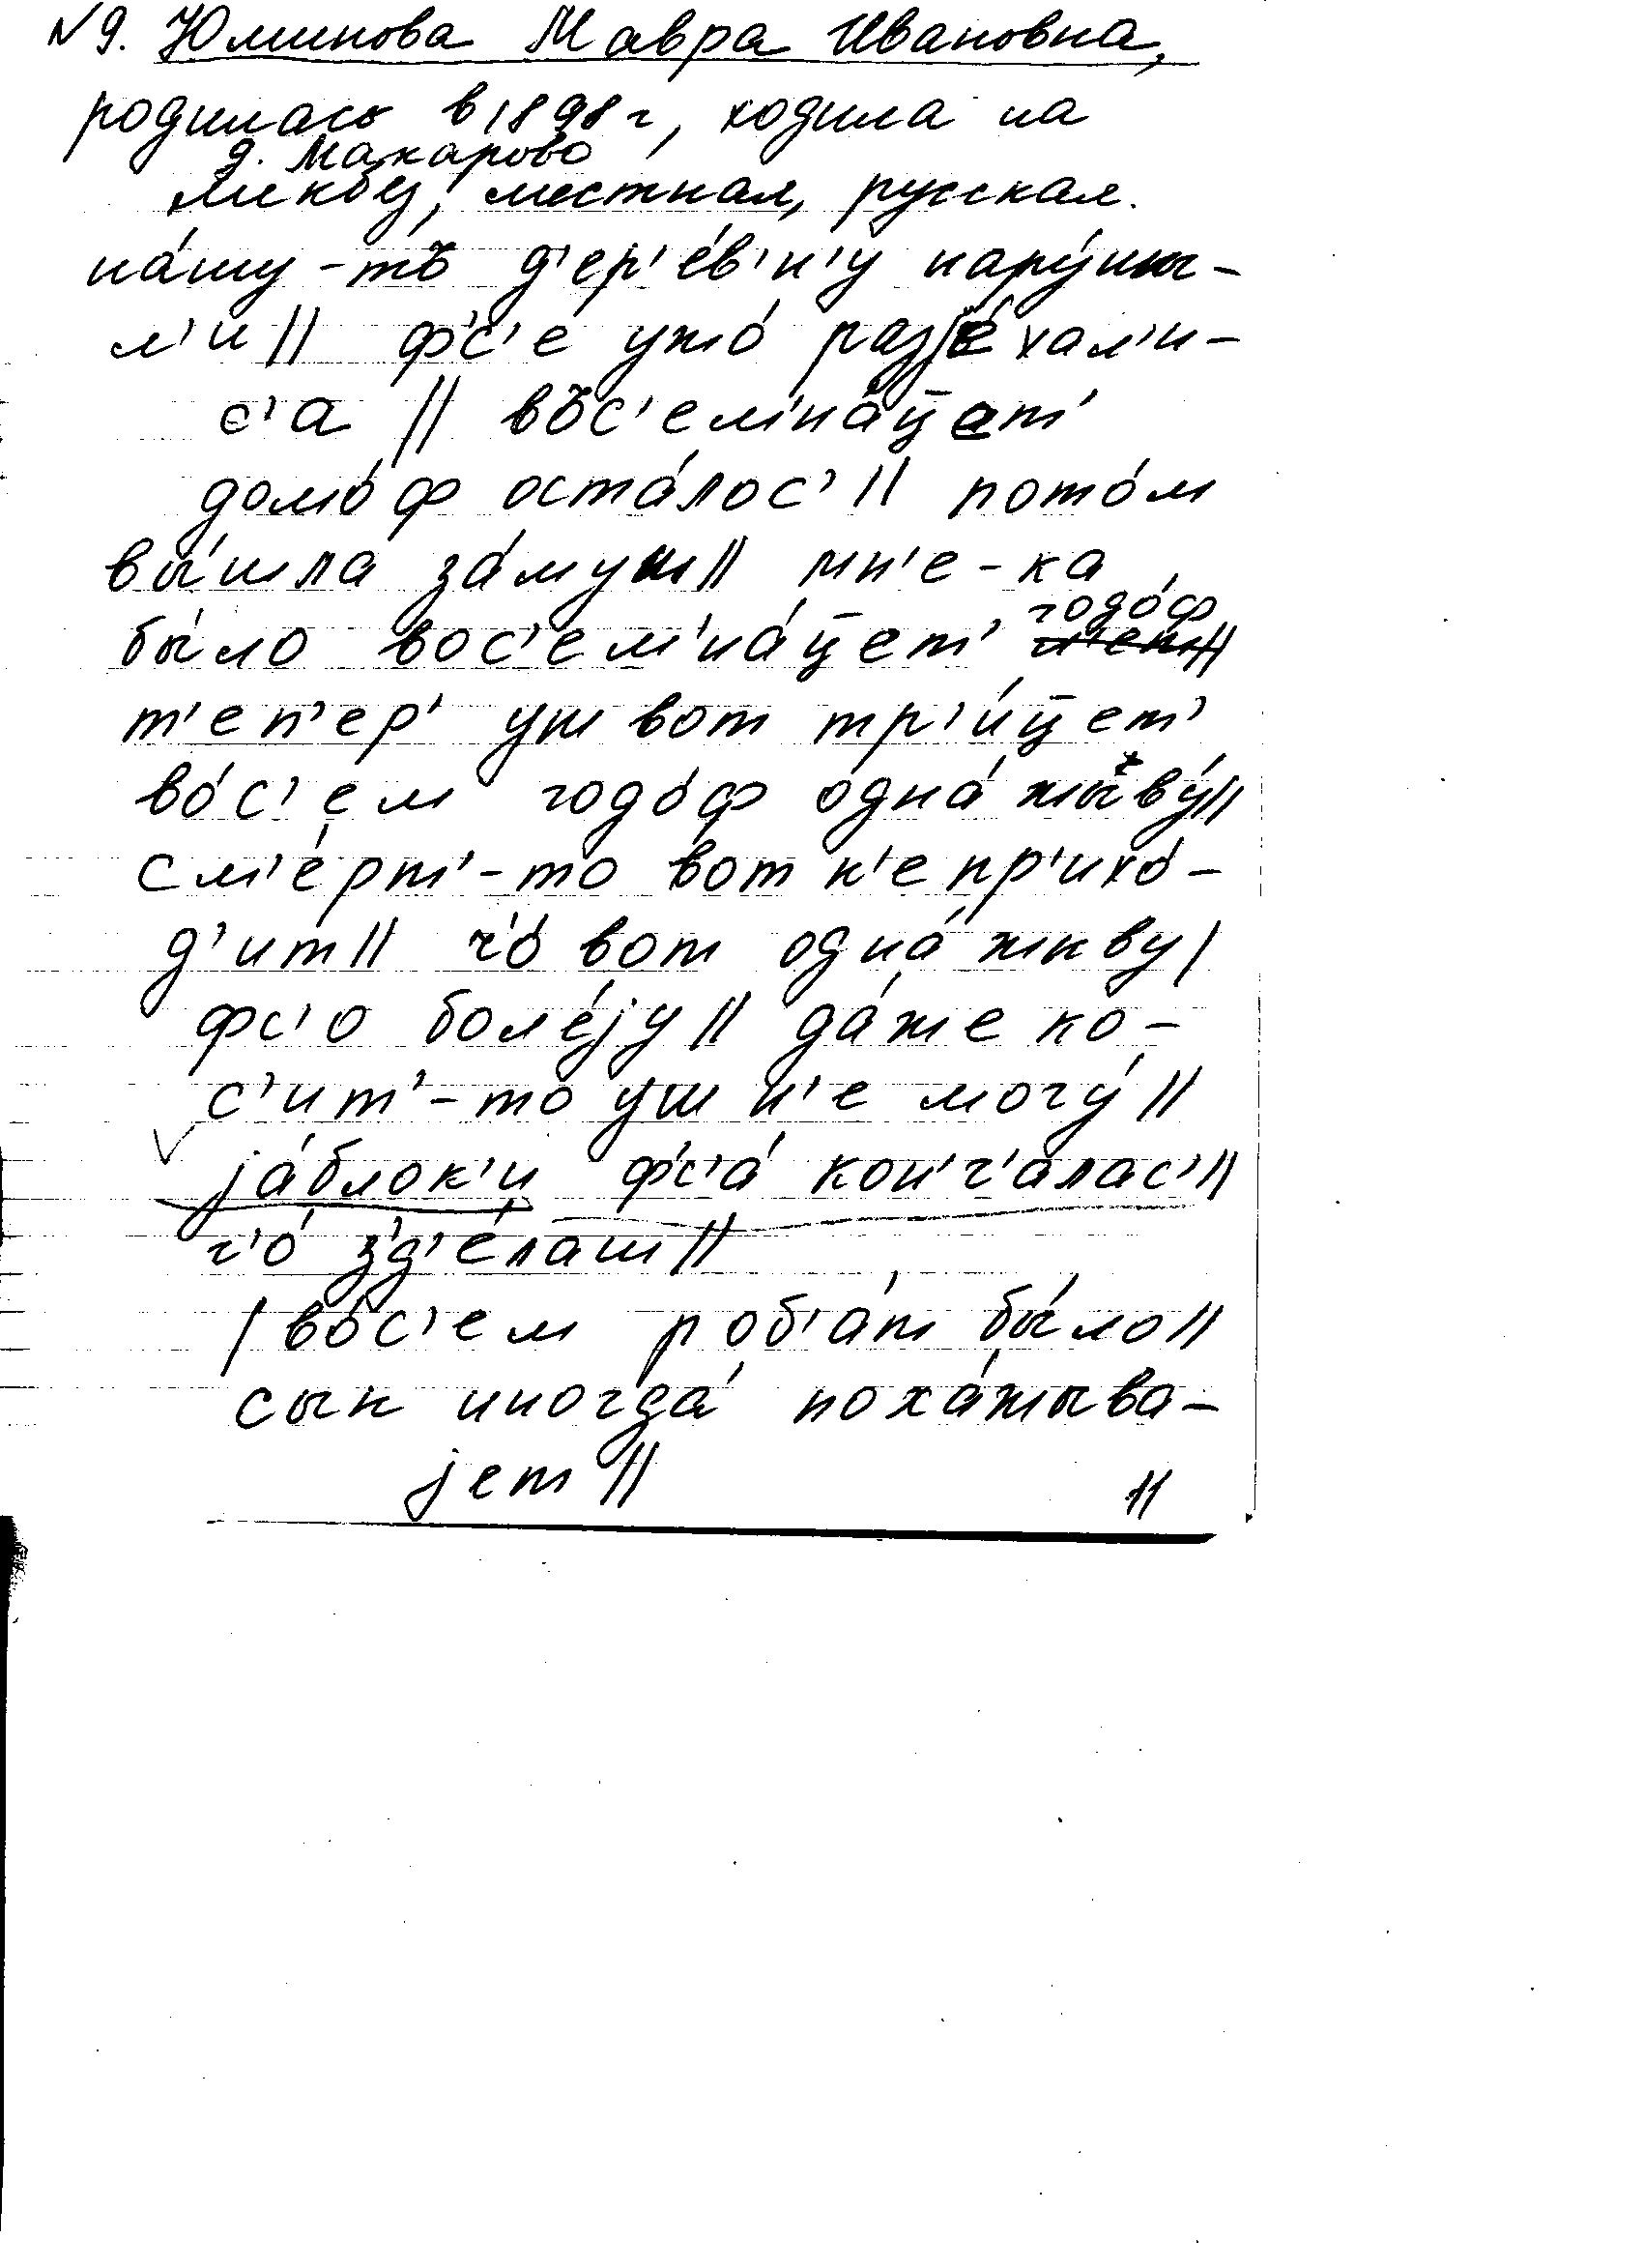 №9. Юминова Мавра Ивановна,
родилась в 1898 г, ходила на
д. Макарово
ликбез, местная, русская.
на́шу-тъ д'ер'е́в'н'у нару́шы-
л'и || ф'с'е ужо́ разjе́хал'и-
с'а || въс'ем'на́ц̄ет'
домо́ф оста́лос' || пото́м
вы́шла за́муш || мн'е-ка
бы́ло вос'ем'на́ц̄ет' годо́ф ||
т'еп'ер' уш вот тр'и́ц̄ет'
во́с'ем годо́ф одна́ жыву́ ||
см'е́рт'-то вот н'е пр'ихо́-
д'ит || ч'о́ вот одна́ живу |
фс'о боле́jу || да́же ко-
с'ит'-то уш н'е могу́ ||
jа́блок'и ф'с'а́ кон'ч'алас' ||
ч'о́ з'д'е́лаш ||
| во́с'ем роб'а́т бы́ло ||
сын иногда́ поха́жыва-
jет ||
11